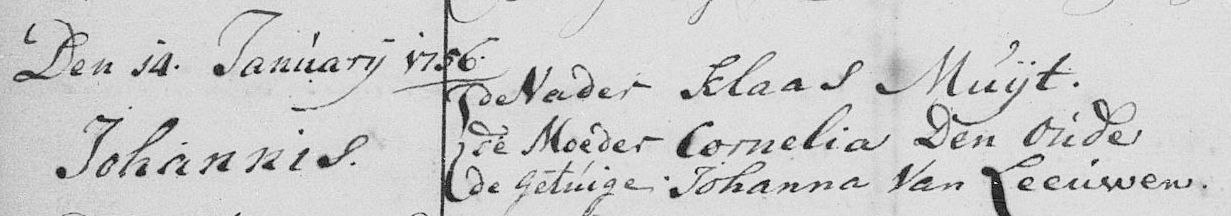 Den 14. Januarij 1756.
Johannis.
de Vader Klaas Muijt.
de Moeder Cornelia Den Oude
de Getuige Johanna Van Leeuwen.